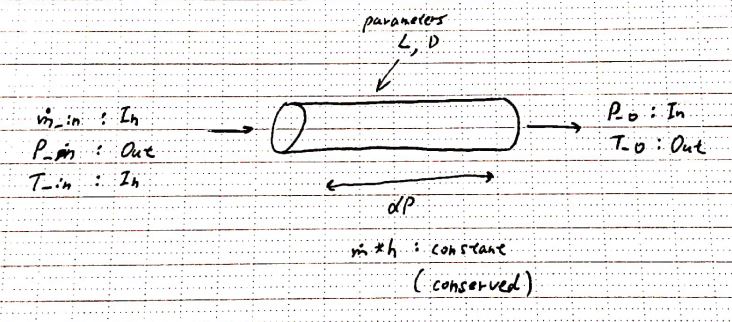 parameters
L, D
ṁ_in : In
P_in : Out
T_in : In
P_o : In
T_o : Out
dP
ṁ*h : constant
(conserved)